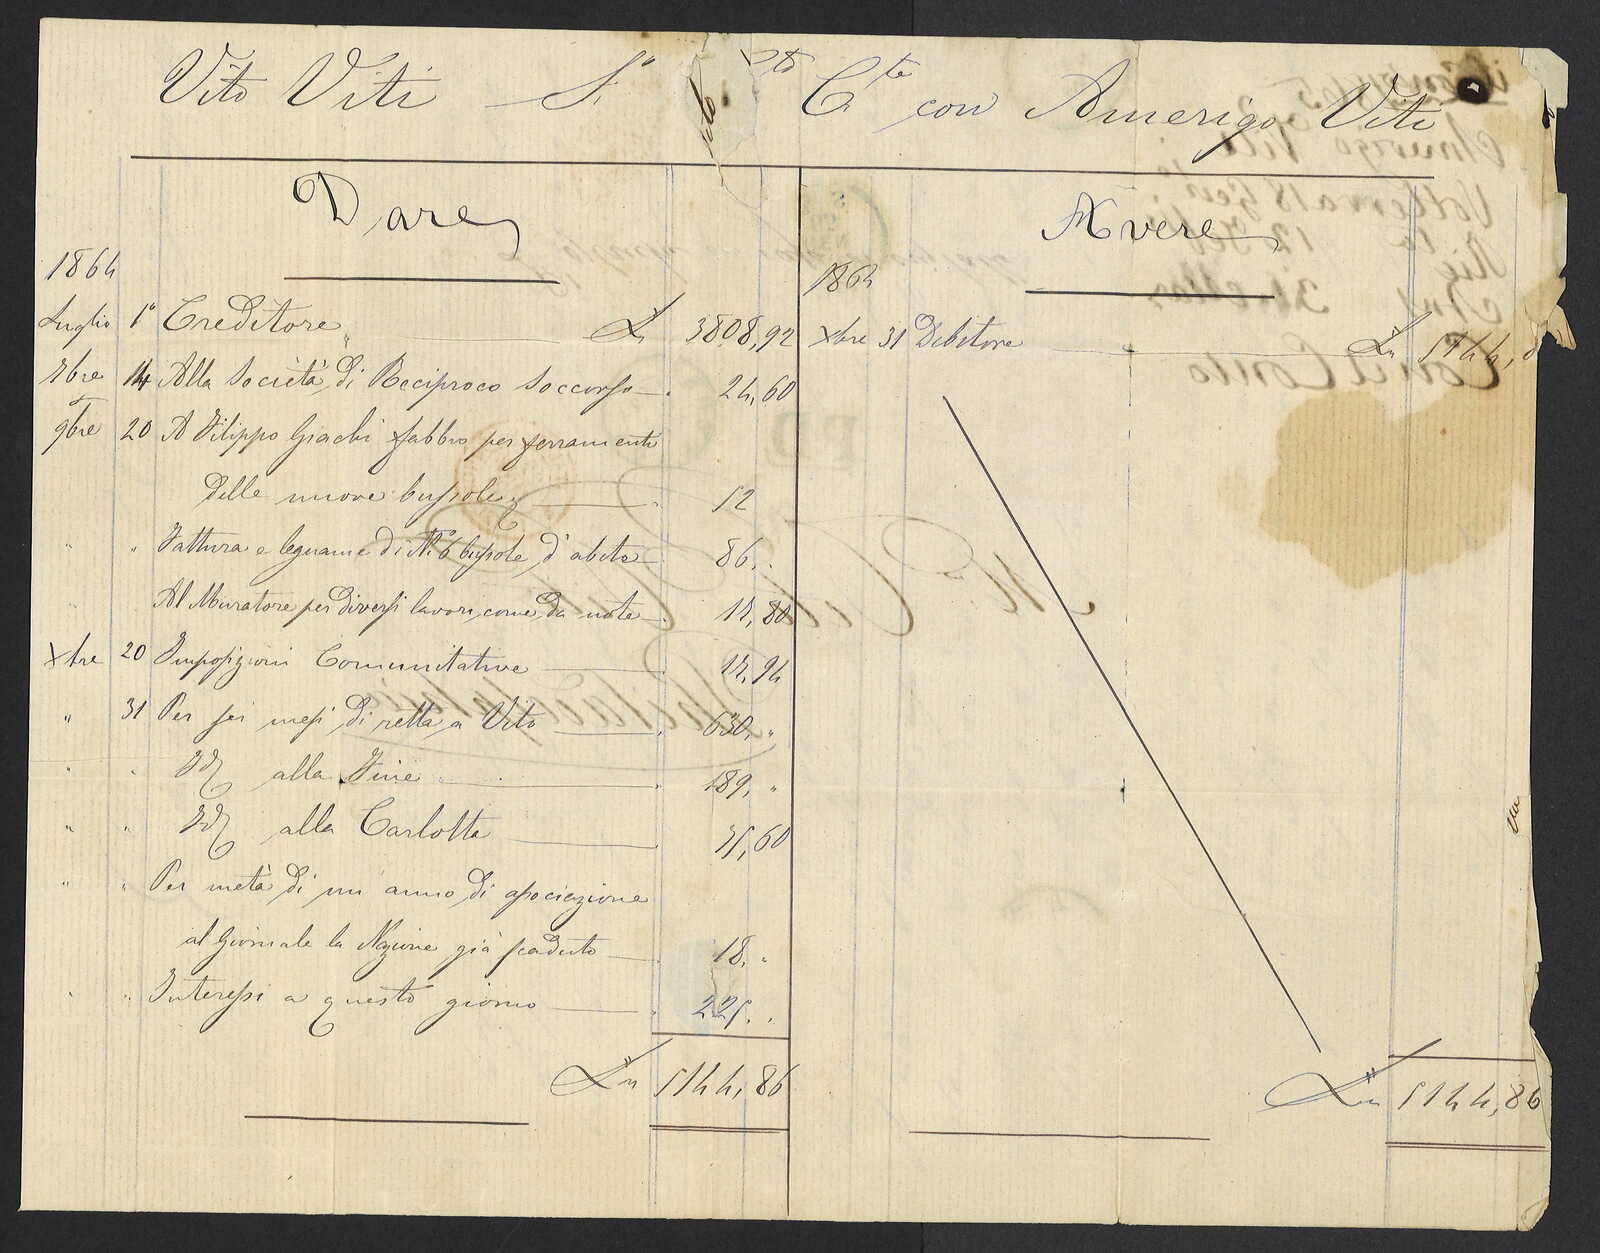 Vito Viti S.º Cto Cte con Amerigo Viti
Dare
1864
Luglio 1º Creditore Ln 3808,92
7bre 14 Alla Società di Reciproco Soccorso " 24,60
9bre 20 A Filippo Giachi fabbro per ferramenti
delle nuove bussole " 52
" " Fattura e legname di Nº 6 bussole d'abeto " 86, "
Al Muratore per diversi lavori, come da note " 17,80
Xbre 20 Imposizioni Comunitative " 17,94
" 31 Per sei mesi di retta a Vito " 630, "
" " Id alla Fine " 189, "
" " Id alla Carlotta " 75,60
" " Per metà di un anno di associazione
al Giornale la Nazione già scaduto " 18, "
" " Interessi a questo giorno " 225, "
Ln 5144,86
Avere
1864
Xbre 31 Debitore Ln 5144,8
Ln 5144,86